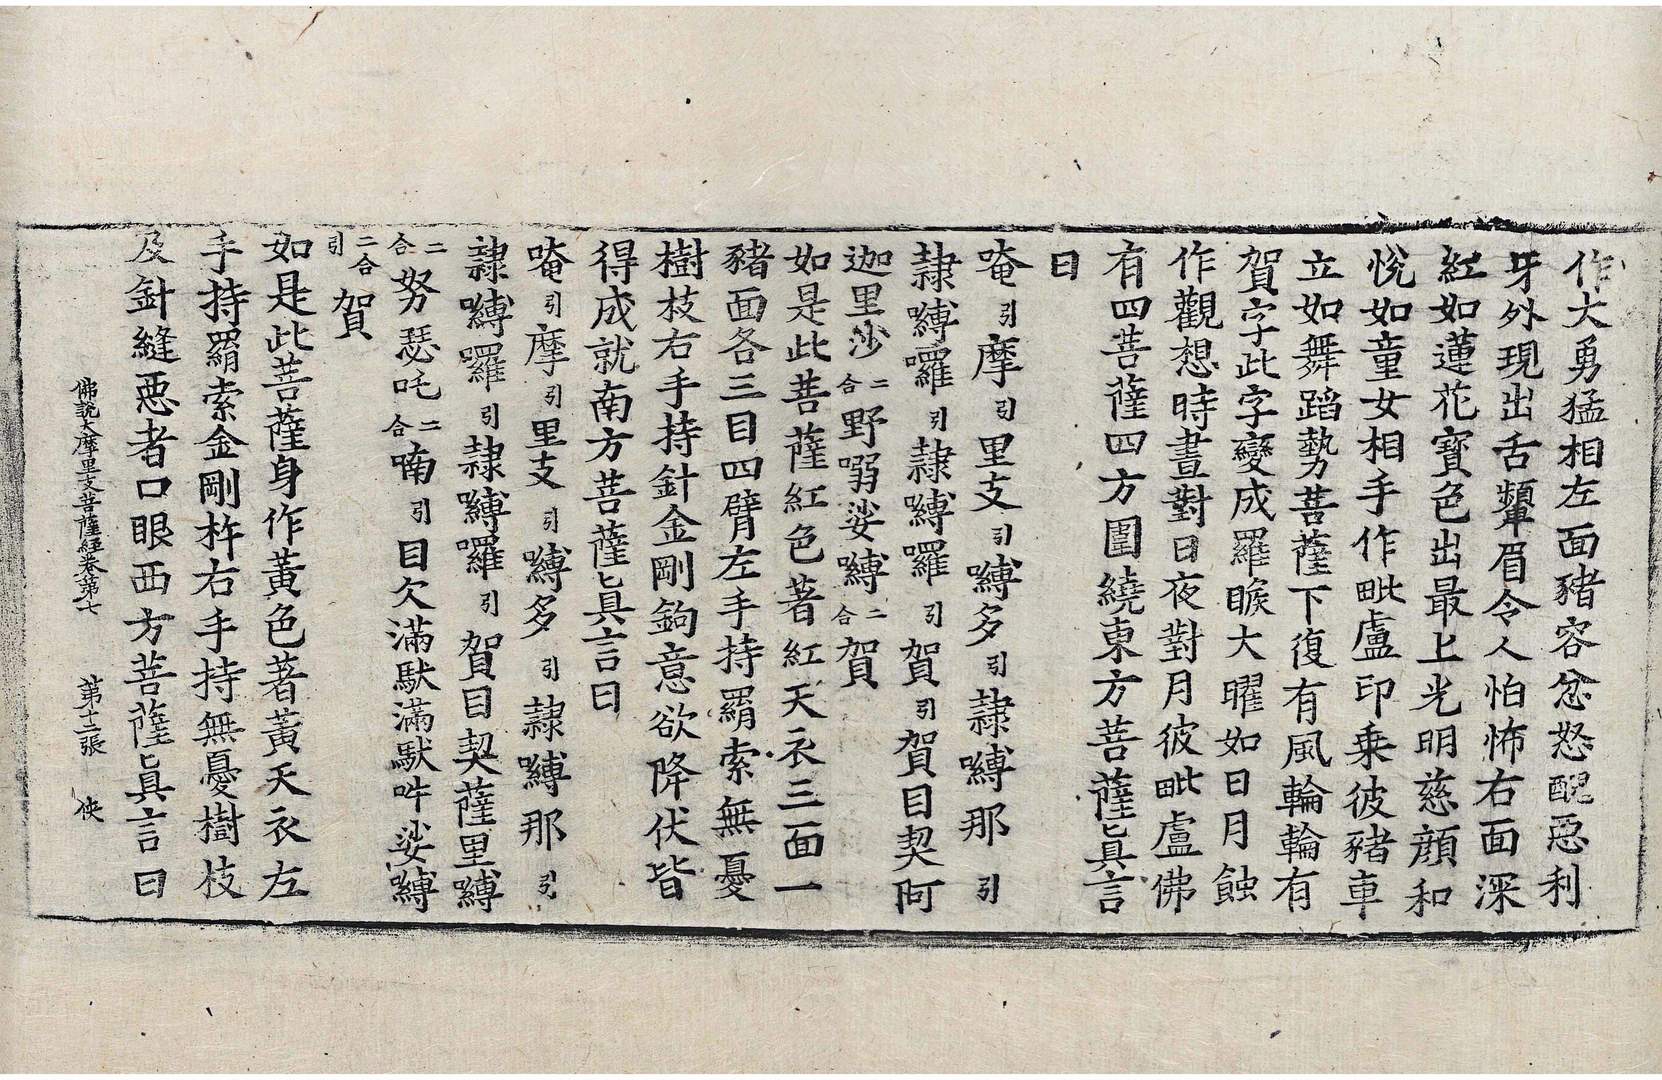 作大勇猛相左面豬容忿怒醜惡利
牙外現出舌顰眉令人怕怖右面深
紅如蓮花寶色出最上光明慈顔和
悅如童女相手作毗盧印乗彼豬車
立如舞蹈勢菩薩下復有風輪輪有
賀字此字變成羅睺大曜如日月蝕
作觀想時晝對日夜對月彼毗盧佛
有四菩薩四方圍繞東方菩薩真言
曰
唵引摩引里支引嚩多引隷嚩那引
隷嚩囉引隷嚩囉引賀引賀目契阿
迦里沙二合野嚩娑嚩二合賀
如是此菩薩紅色著紅天衣三面一
豬面各三目四臂左手持羂索無憂
樹枝右手持針金剛鉤意欲降伏皆
得成就南方菩薩真言曰
唵引摩引里支引嚩多引隷嚩那引
隷嚩囉引隷嚩囉引賀目契薩里嚩
二合努瑟吒二合喃引目欠滿馱滿馱吽娑嚩
二合引賀
如是此菩薩身作黃色著黃天衣左
手持羂索金剛杵右手持無憂樹枝
及針縫惡者口眼西方菩薩真言曰
佛說大摩里支菩薩經卷第七 第十二張 俠